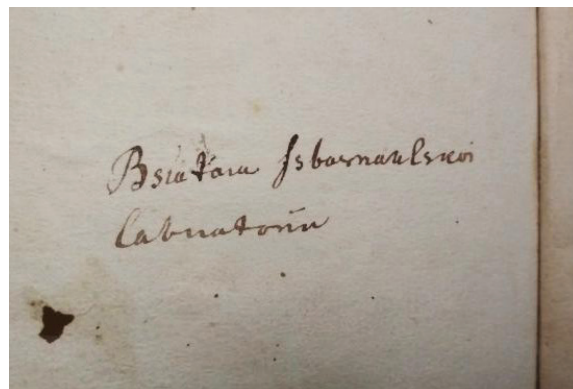 Bsiataia Jsbarnaulskoi
Labratorii